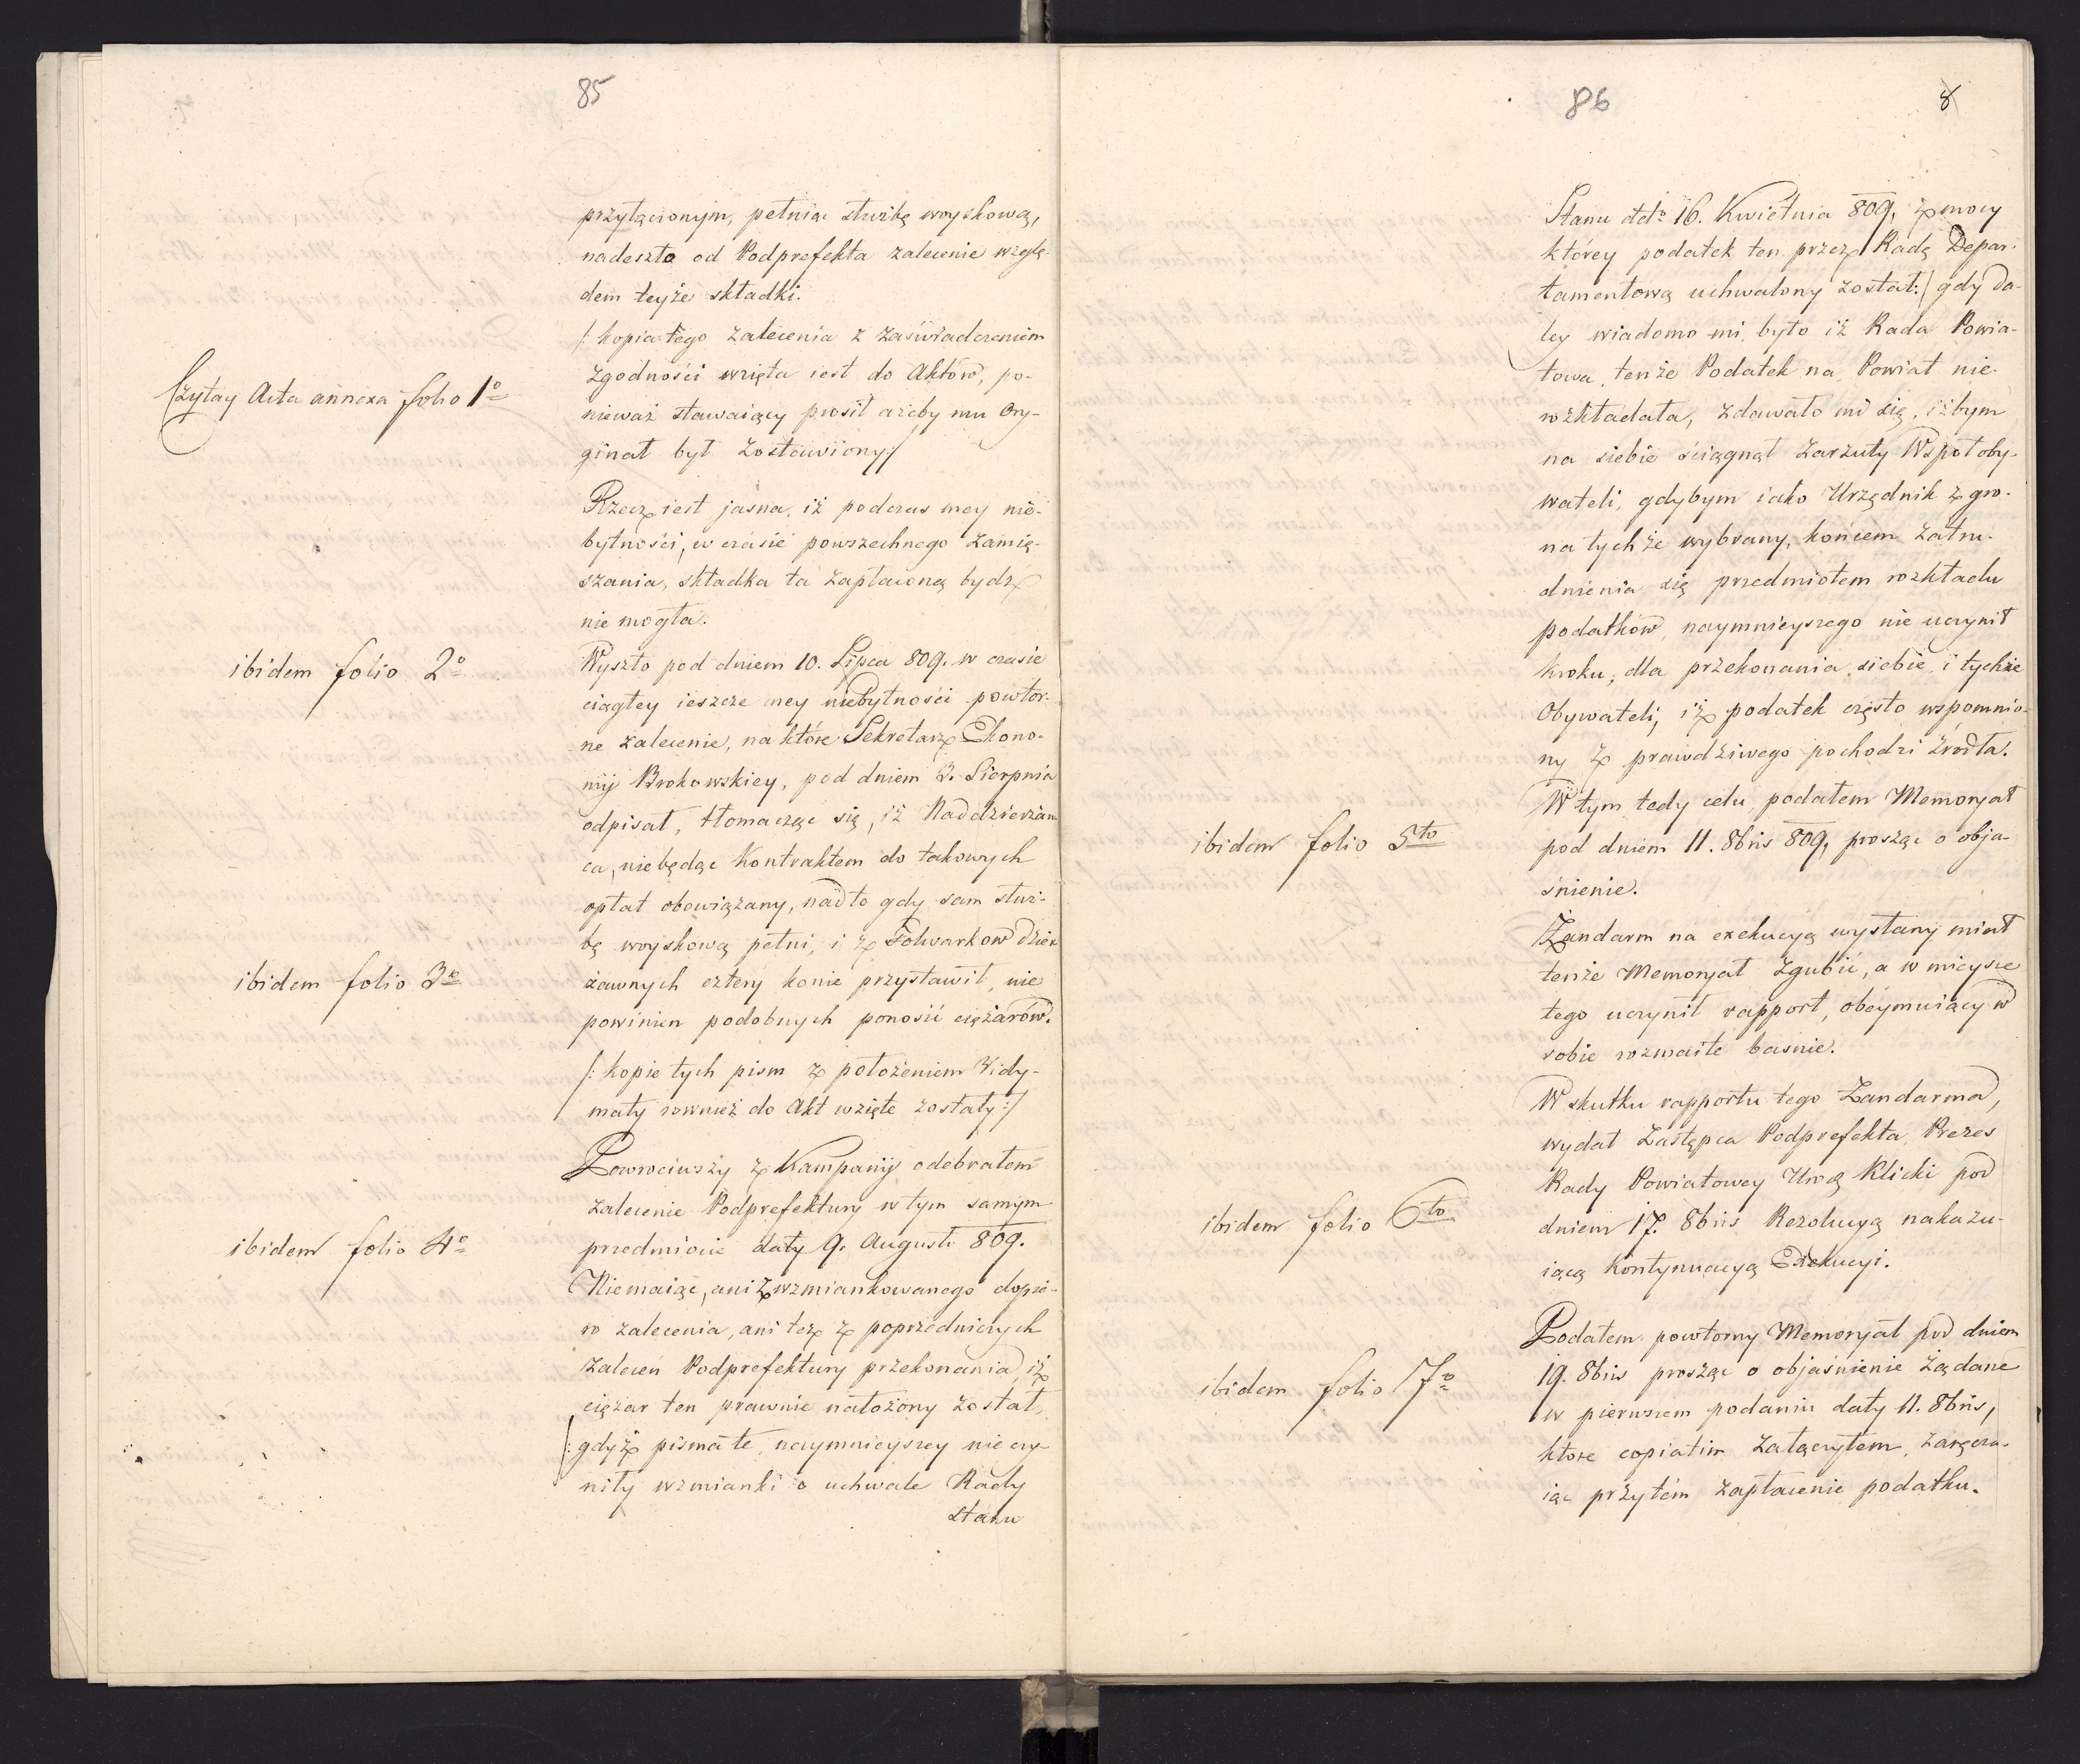 85
przyłączonym, pełniąc służbę woyskową,
nadeszło od Podprefekta zalecenie wzglę-
dem teyże składki.
/: kopia tego zalecenia z zaświadczeniem
zgodności wzięta iest do Aktów, po-
Czytay Acta annexa folio 1o
nieważ stawaiący prosił ażeby mu Ory-
ginał był zostawiony:/
Rzecz iest jasna, iż podczas mey nie-
bytności, w czasie powszechnego zamię-
szania, składka ta zapłaconą bydź
nie mogła.
ibidem folio 2o
Wyszło pod dniem 10. Lipca 809. w czasie
ciągłey ieszcze mey niebytności powtór-
ne zalecenie, na które Sekretarz Ekono-
mij Brokowskiey, pod dniem 3. Sierpnia
odpisał, tłomacząc się, iż Naddzierżaw
ca, nie będąc Kontraktem do takowych
opłat obowiązany, nadto gdy sam służ-
bę woyskową pełni, i z Folwarkow dzier
ibidem folio 3o
żawnych cztery konie przystawił, nie
powinien podobnych ponosić ciężarów.
/: kopie tych pism z położeniem Vidy-
maty rownież do Akt wzięte zostały :/
Powrociwszy z Kampanij odebrałem
zalecenie Podprefektury w tym samym
ibidem folio 4o
przedmiocie daty 9. Augusti 809.
Niemaiąc, ani z wzmiankowanego dopie-
ro zalecenia, ani też z poprzedniczych
zaleceń Podprefektury przekonania, iż
ciężar ten prawnie nałożony został,
/: gdyż pisma te, naymnieyszey nie czy-
niły wzmianki o uchwale Rady
Stanu
86
8
Stanu ddo 16. Kwietnia 809, z mocy
którey podatek ten przez Radę Depar-
tamentową uchwalony został:/ gdy da-
ley wiadomo mi było iż Rada Powia-
towa, tenże Podatek na Powiat nie-
rozkładała, zdawało mi się, iżbym
na siebie ściągnął zarzuty Wspołoby-
wateli, gdybym iako Urzędnik z gro-
na tychże wybrany, końcem zatru-
dnienia się przedmiotem rozkładu
podatków, naymnieyszego nie uczynił
kroku, dla przekonania siebie, i tychże
Obywateli, iż podatek często wspomnio-
ny z prawdziwego pochodzi źrodła.
W tym tedy celu podałem Memoryał
ibidem folio 5to
pod dniem 11. 8bris 809, prosząc o obja-
śnienie.
Żandarm na exekucyą wysłany miał
tenże Memoryał zgubić, a w mieysce
tego uczynił rapport, obeymuiący w
sobie rozmaite basnie.
W skutku rapportu tego Żandarma,
wydał Zastępca Podprefekta, Prezes
Rady Powiatowey Ur. Klicki pod
ibidem folio 6to
dniem 17. 8bris Rezolucyą nakazu-
iącą Kontynuacyą Exekucyi.
Podałem powtorny Memoryał pod dniem
ibidem folio 7o
19. 8bris prosząc o objaśnienie żądane
w pierwszem podaniu daty 11. 8bris,
ktore copiatim załączyłem, zaręcza-
iąc przytém zapłacenie podatku.